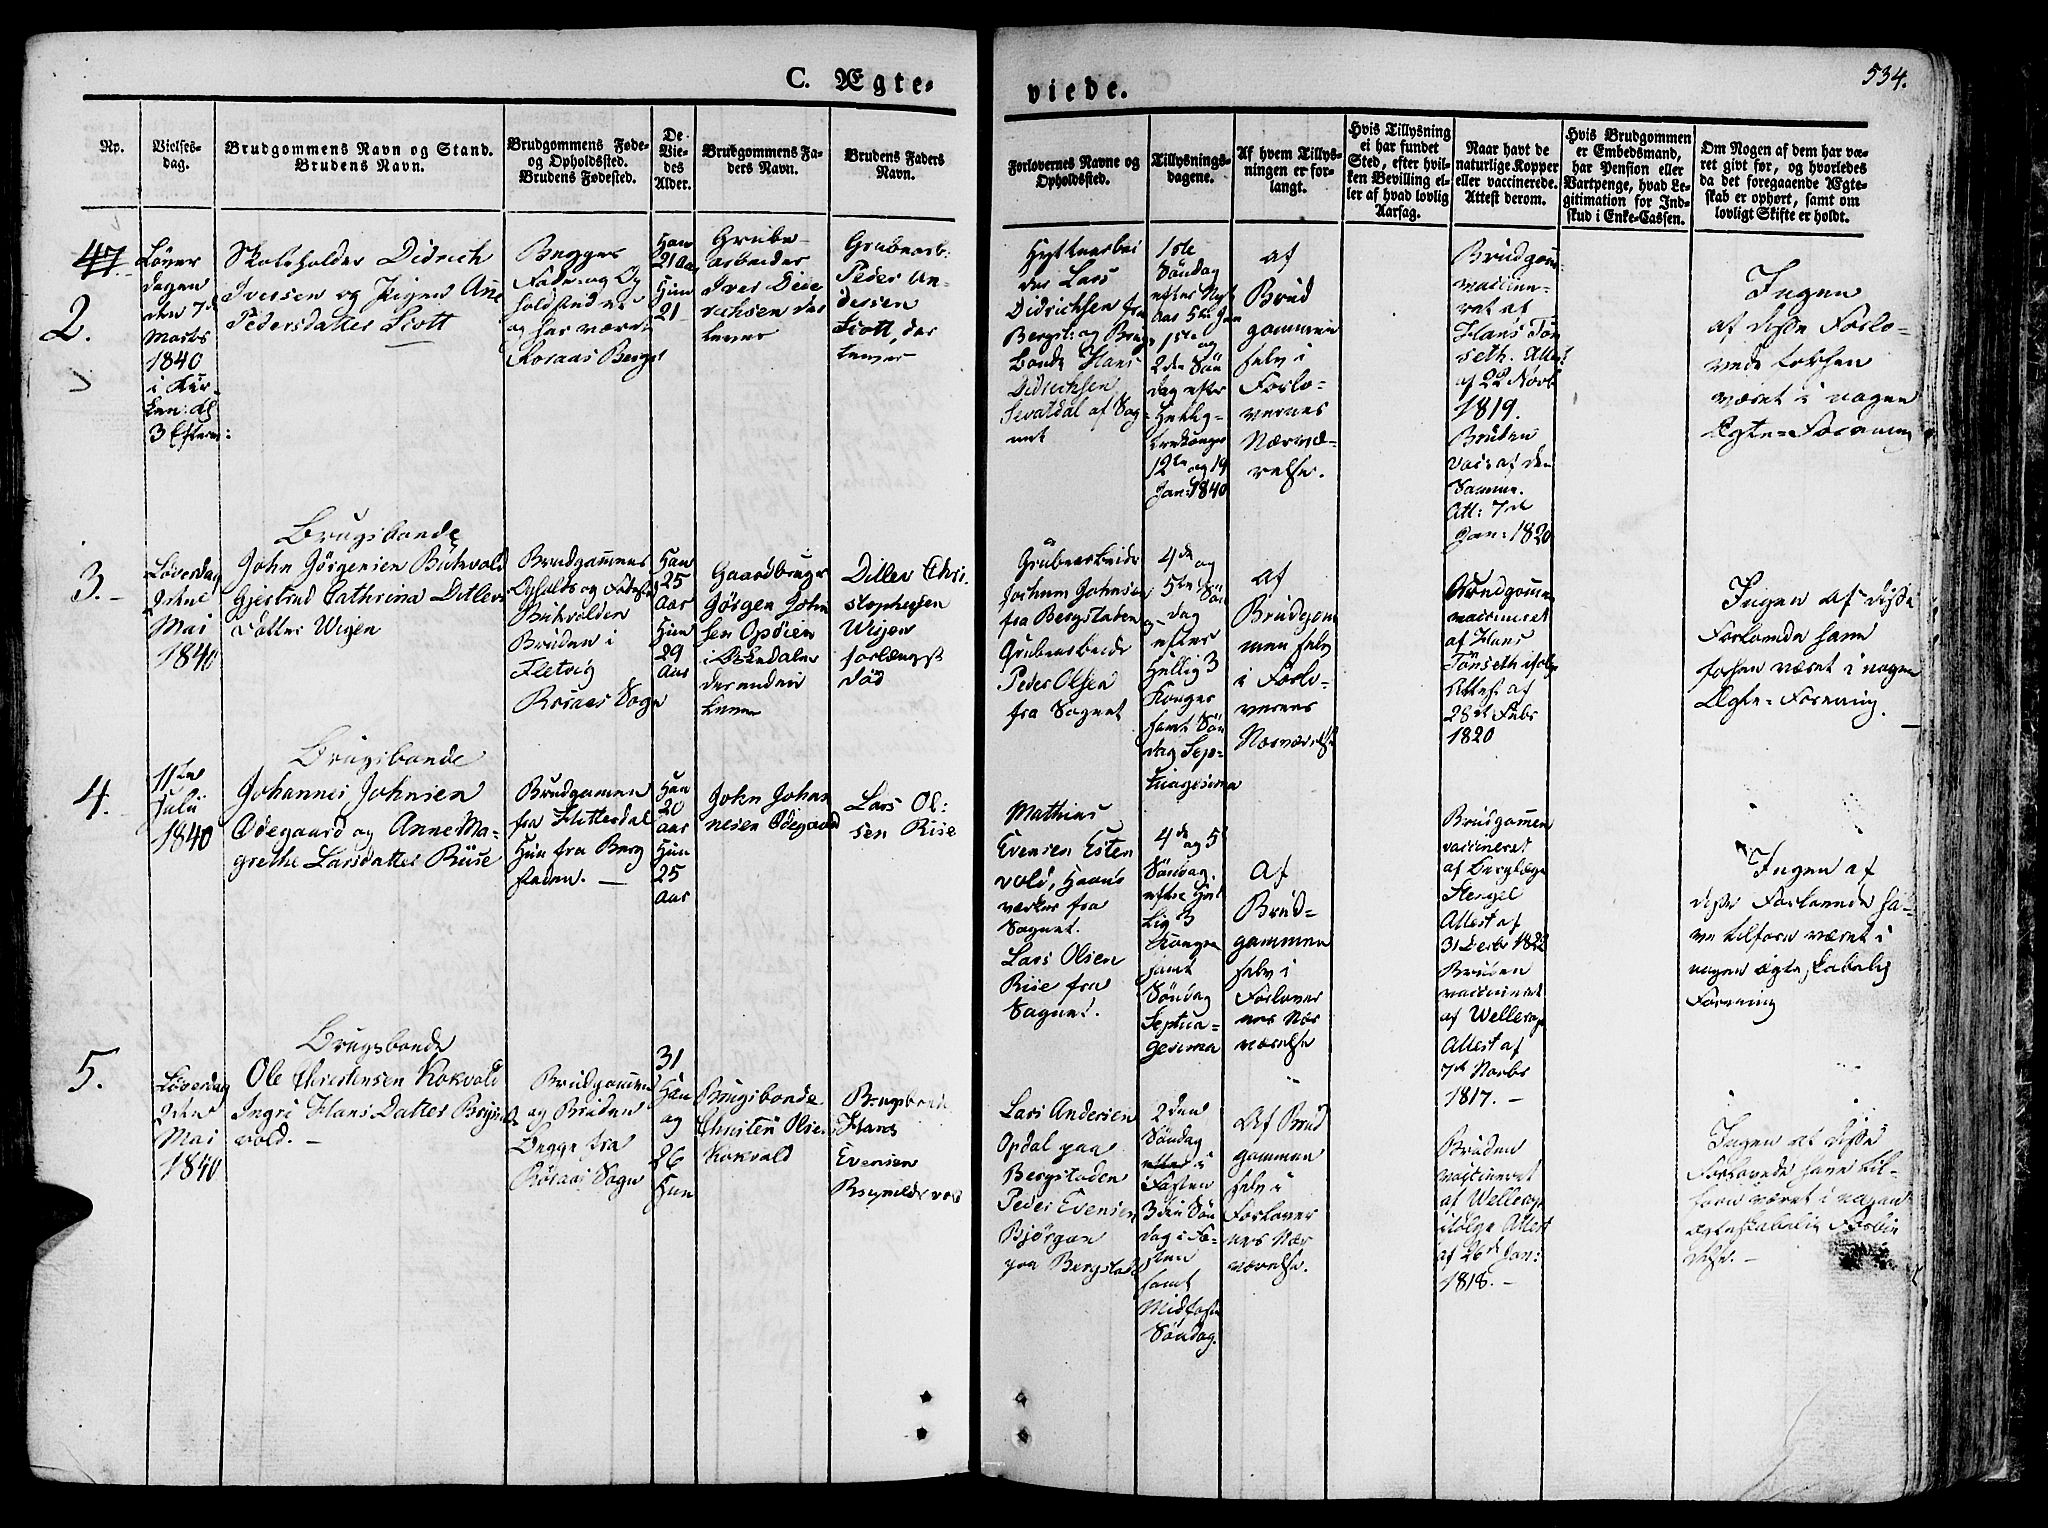 C. Ægte-
viede.
534.
Nr.
Vielses-
dag.
Brudgommens Navn og Stand.
Brudens Navn.
Brudgommens Føde-
og Opholdssted.
Brudens Fødested.
De
Vie-
des
Alder.
Brudgommens Fa-
ders Navn.
Brudens Faders
Navn.
Forlovernes Navne og
Opholdssted.
Tillysnings-
dagene.
Af hvem Tillys-
ningen er for-
langt.
Hvis Tillysning
ei har fundet
Sted, efter hvil-
ken Bevilling el-
ler af hvad lovlig
Aarsag.
Naar havt de
naturlige Kopper
eller vaccinerede.
Attest derom.
Hvis Brudgommen
er Embedsmand,
har Pension eller
Vartpenge, hvad Le-
gitimation for Ind-
skud i Enke-Cassen.
Om Nogen af dem har væ-
ret givt før, og hvorledes
da det foregaaende Ægte-
skab er ophørt, samt om
lovligt Skifte er holdt.
47
2.
Løver
dagen
den 7de
Marts
1840
i Kir-
ken: Kl
3 Efterm:
Skoleholder Didrich
Iversen og Pigen Ane
Pedersdatter Scott
Begges
Føde og Op
holdssted er
og har været
Roraas Bergst
Han
21 Aar
Hun
21
Grube-
arbeider
Iver Died
richsen der
lever
Grubearb.
Peder An-
dersen
Scott, der
lever
Hyttearbei
der Lars
Didrichsen fra
Bergst: og Brugs
bonde Hans
Didrichsen
af Sog-
net
1ste
Søndag
efter Nyt
Aar 5te Jan
1ste og
2den Søn
dag efter
Hellig-
trekonger
12te og 19
Jan: 1840
af
Brud
gommen
selv i
Forlo-
vernes
Nærvæ-
relse.
Brudgom-
vaccine-
ret af
Hans Tøn
seth. Attest
af 22 Novb
1819.
Bruden
vacc af den
Samme.
Att: 7de
Jan: 1820
Ingen
af disse Forlo-
vede
været i nogen
Ægte-Forening
3.
Løverdag
Mai
1840
Brugsbonde
John Jørgensen Bukvold
Gjertrud Cathrina Ditlevs
Datter Wigen
Brudgommens
Opholds og Fødested
Bukvolden
Bruden i
Roraas Sogn
Han
25
Aar
Hun
29
Aar
Gaardbruger
Jørgen John
sen Opøien
i
der endnu
lever
Ditlev Chri-
stophersen
Wigen
forlængst
død
Grubearbeider
Jochum Johnsen
fra Bergstaden
Grubearbeide
Peder Olsen
fra Sognet
4de og
5te Søn
dag
efter
Hellig 3
Konger
samt Søn
dag Sep-
tuagesima
af
Brudgom
men selv
i Forlo-
vernes
Nærværelse
Brudgommen
vaccineret
af Hans
Tønseth ifølge
Attest af
28de Febr
1820
Ingen af disse
Forlovede have
været i nogen
Ægte-Forening.
4.
11te
Julii
1840
Brugsbonde
Johannes Johnsen
Ødegaard og Anne Ma-
grethe Larsdatter Riise
Brudgommen
fra Hitterdal
Hun fra Berg
staden.
Han
20
Aar
Hun
25
Aar
John Johan
nesen Ødegaard
Lars Ol:
sen Riise
Mathias
Evensen Esten
vold, Haand
værker fra
Sognet.
Lars Olsen
Riise fra
Sognet.
4de og 5te
Søndag
efter Hel
lig 3
Konger
samt
Søndag
Septua-
gesima
af
Brud-
gommen
selv i
Forlover
nes Nær
værelse
Brudgommen
vaccineret
af Berglæge
Stengel
Attest af
31 Decbr 1822
Bruden
vaccineret
af Wellerop
Attest af
7de Novbr
1817.
Ingen af
disse Forlovede ha-
ve tilforn været i
nogen ægteskabelig
Forening
5.
Løverdag
Mai
1840
Brugsbonde
Ole Christensen Kokvold
Ingri Hans Datter
vold.
Brudgommen
og Bruden
begge fra
Røraas Sogn
31
Han
og
26
Hun
Brugsbonde
Christen Olsen
Kokvold
Brugsbonde
Hans
Evensen
Lars Andersen
Opdal paa
Bergstaden
Peder Evensen
Bjørgan
paa Bergstad
2den
Søndag
i Fasten
3die Søn
dag i Fa-
sten
samt
Midfaste
Søndag.
Af Brud
gommen
selv i
Forlover
nes Nær
værelse.
Bruden
vaccineret
af Wellerop
ifølge Attest
af 26de Jan:
1818.
Ingen af disse
Forlovede have til-
forn været i nogen
ægteskabelig Forbin
delse.